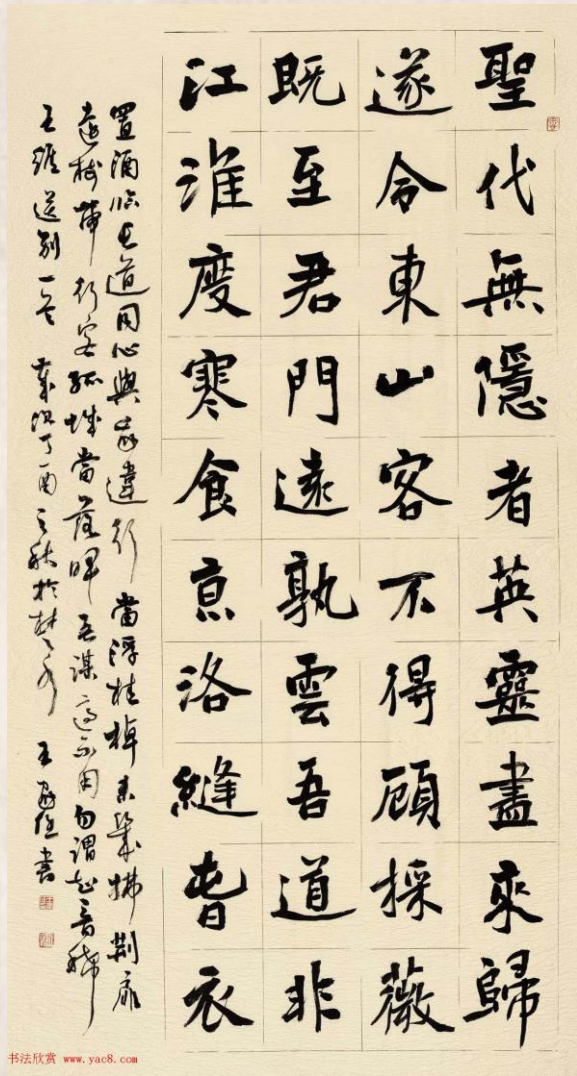 聖代無隱者英靈盡來歸
遂令東山客不得顧採薇
既至君門遠孰雲吾道非
江淮度寒食京洛縫春衣
置酒臨長道同心與我違行當浮桂棹未幾拂荆扉
遠樹帶行客孤城當落暉吾謀適不用勿謂知音稀
王維送别一首 歲次丁酉之秋於 王 書
书法欣赏 www.yac8.com